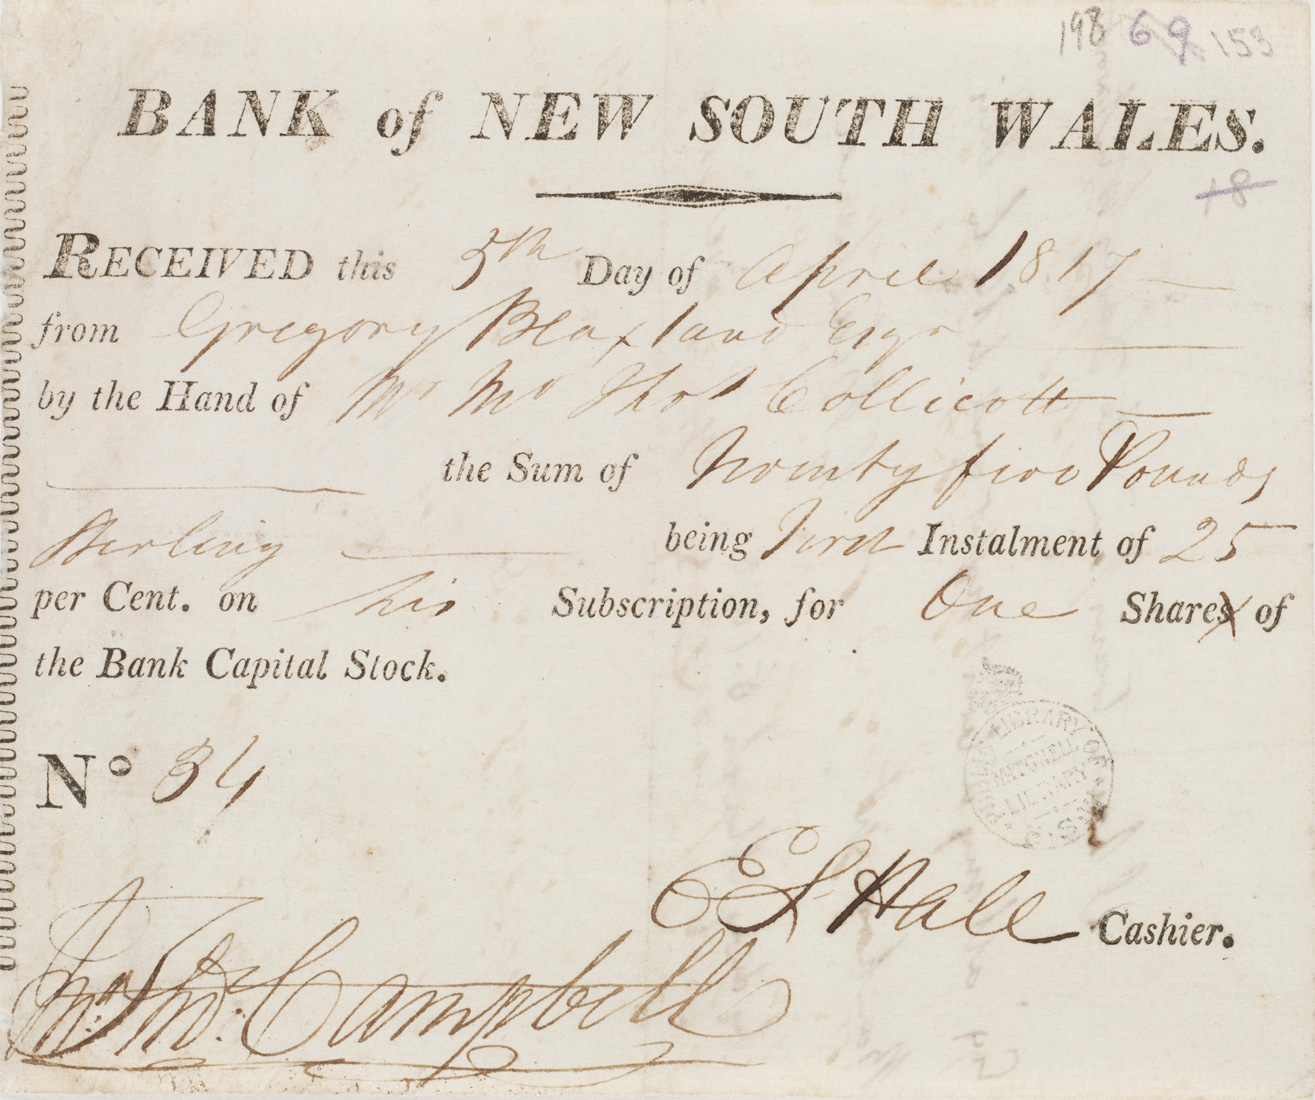 198 69 153
BANK of NEW SOUTH WALES.
18
RECEIVED this 5th Day of April 1817
from Gregory Blaxland Esqr
by the Hand of Mr Thos Collicott
the Sum of Twenty five Pounds
Sterling being First Instalment of 25
per Cent. on his Subscription, for One Shares of
the Bank Capital Stock.
No 34
PUBLIC LIBRARY OF N.S.W.
MITCHELL
LIBRARY
E S Hall Cashier.
Jno Thos Campbell